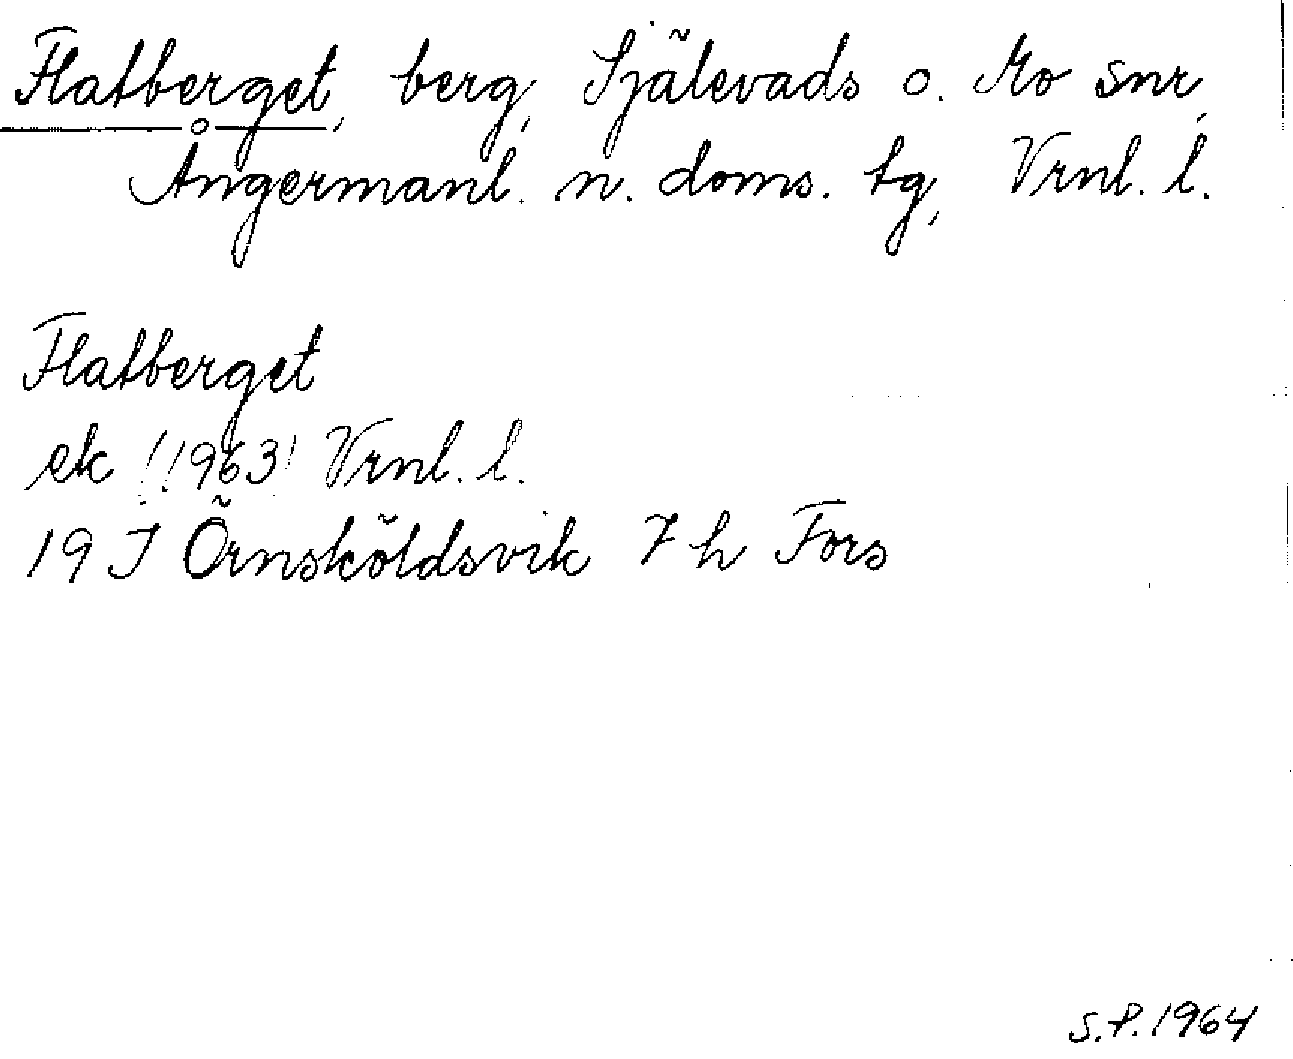 Flatberget, berg, Själevads o. Mo snr,
Ångermanl. n. doms. tg, Vrnl. l.
Flatberget
ek (1963) Vrnl. l.
19 J Örnsköldsvik 7 h Fors
S.P. 1964